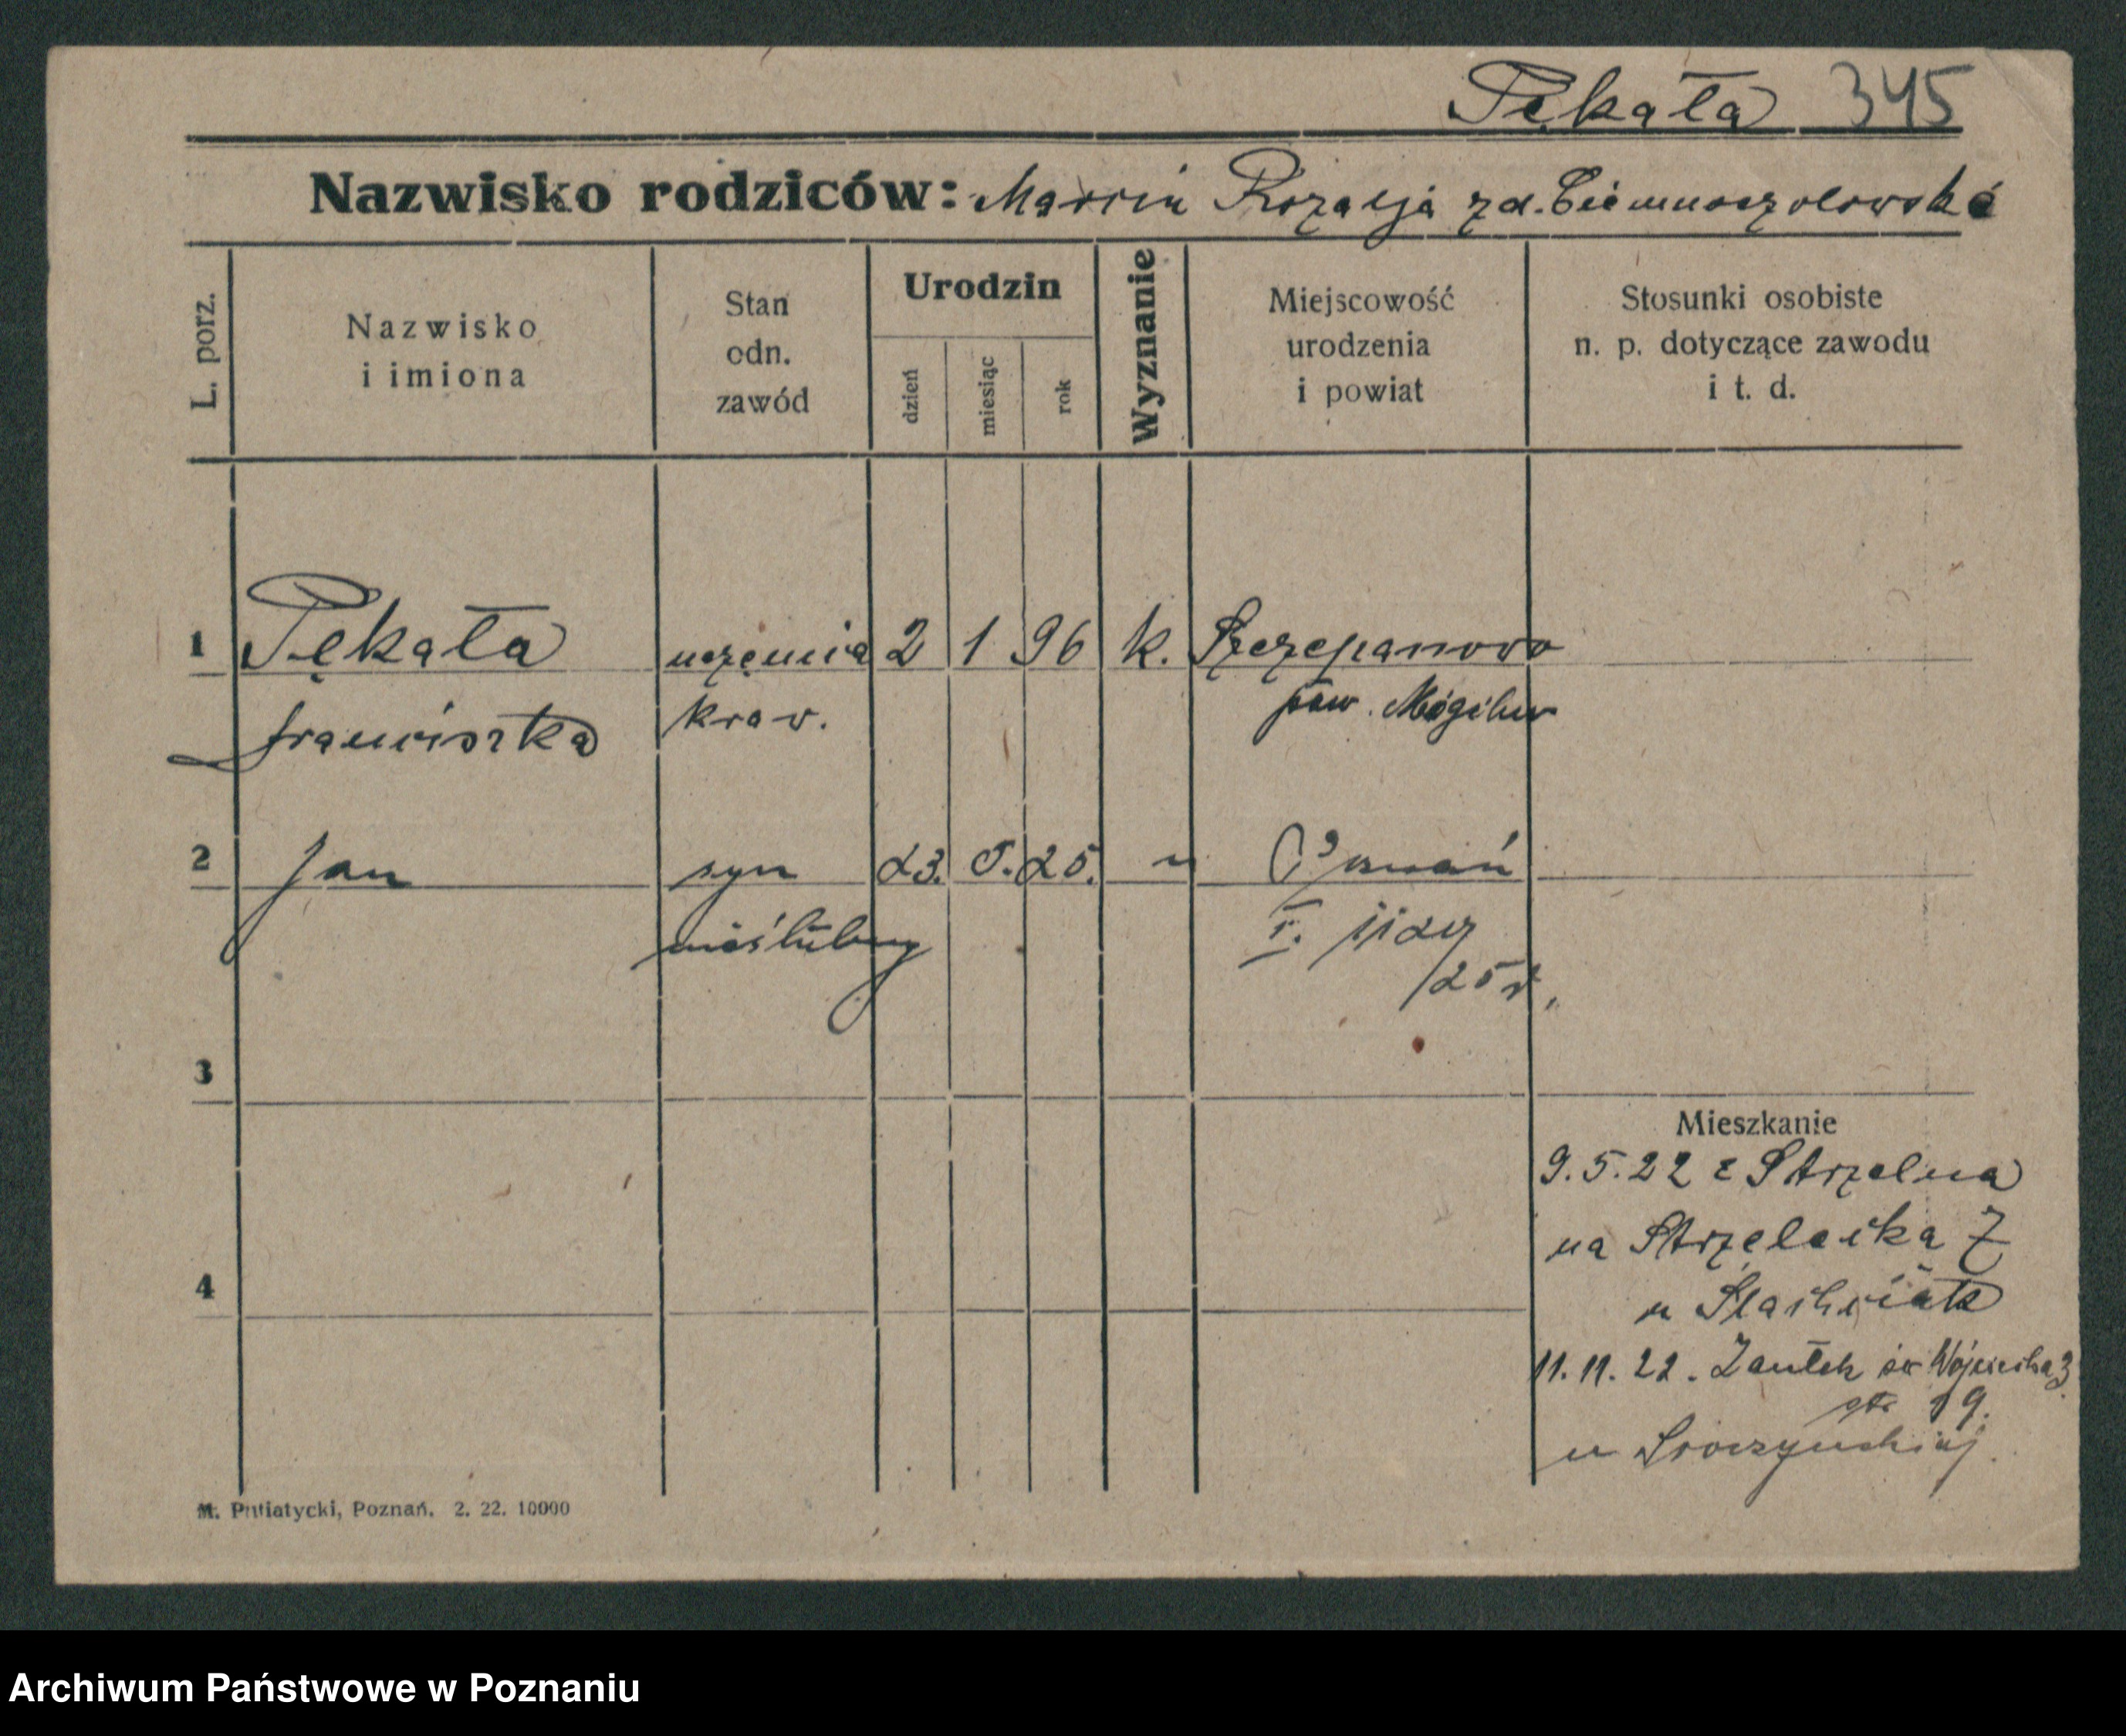 Pękała 345
Nazwisko rodziców: Marcin Rozalja zd.
L. porz.
Nazwisko
i imiona
Stan
odn.
zawód
Urodzin
dzień
miesiąc
rok
Wyznanie
Miejscowość
urodzenia
i powiat
Stosunki osobiste
n. p. dotyczące zawodu
i t. d.
1 Pękała uczennica 2 1 96 k. Szczepanowo
Franciszka kraw. pow. Mogilno
2 Jan syn 23. 5. 25. " Poznań
nieślubny
25 r.
3
Mieszkanie
9.5.22 z Strzelna
na Strzelecka 7
u
4
11.11.22. Zaułek św Wojciecha 3
19.
u
M. Putiatycki, Poznań. 2. 22. 10000
Archiwum Państwowe w Poznaniu